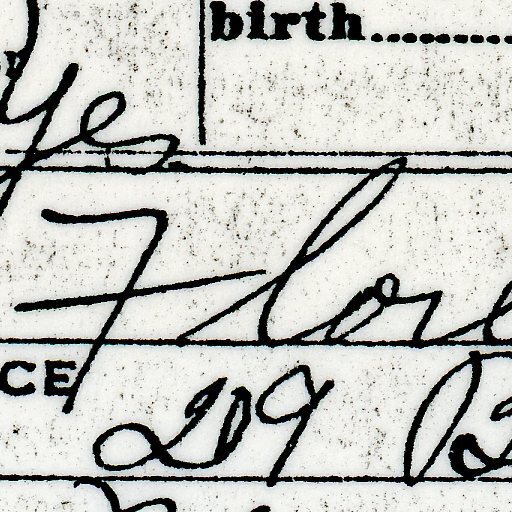 birth..........
yes
Flore
CE
209 B